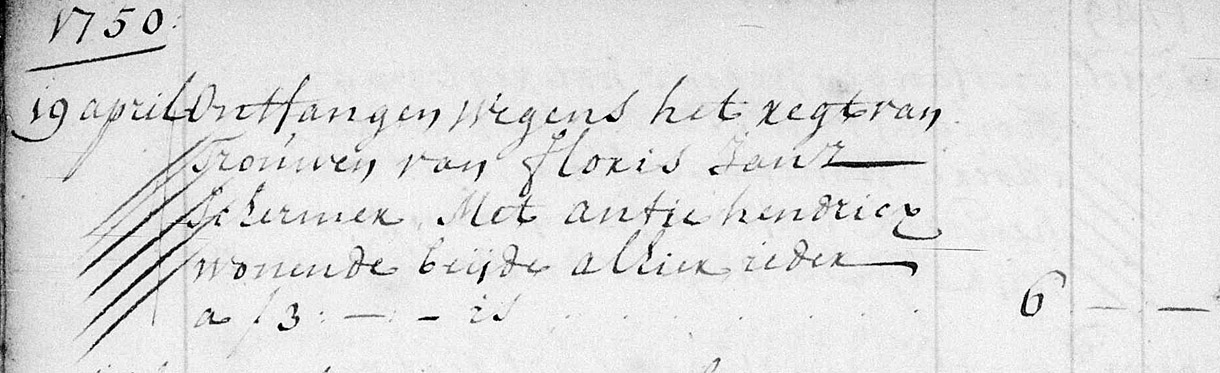 1750.
19 april Ontfangen Wegens het regt van
Trouwen van floris Janz
Schermer Met antie hendricx
wonende beijde alhier ieder
a f 3 : — : – is . . . . . . . 6 — —